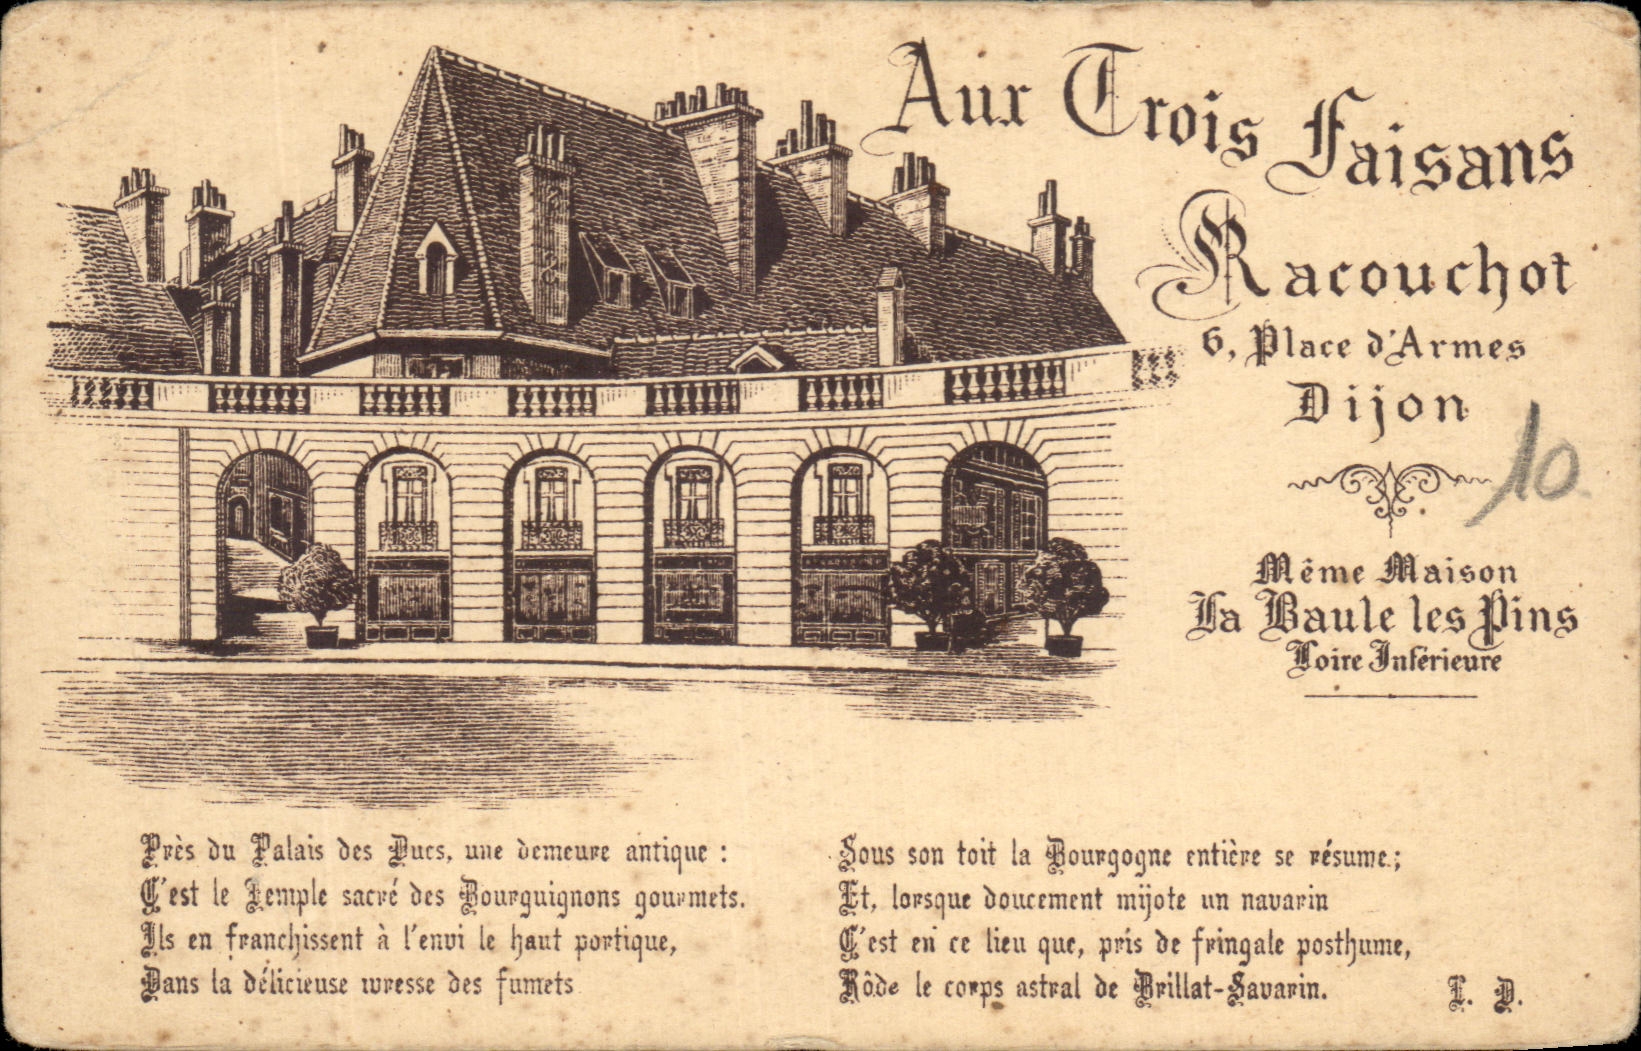 Aux Trois Faisans
Racouchot
6, Place d'Armes
Dijon
10
Même Maison
La Baule les Pins
Loire Inférieure
Près du Palais des Ducs, une demeure antique :
C'est le Temple sacré des Bourguignons gourmets.
Ils en franchissent à l'envi le haut portique,
Dans la délicieuse ivresse des fumets
Sous son toit la Bourgogne entière se résume ;
Et, lorsque doucement mijote un navarin
C'est en ce lieu que, pris de fringale posthume,
Rôde le corps astral de Brillat-Savarin.
L. D.